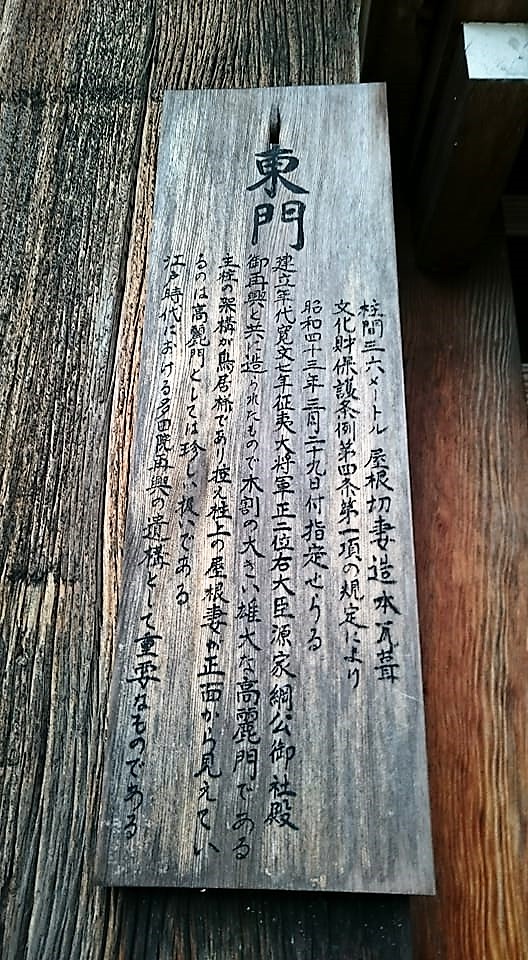 東門
柱間三六メートル 屋根切妻造本瓦葺
文化財保護条例第四条第一項の規定により
昭和四十三年三月二十九日付指定せらる
建立年代寛文七年征夷大将軍正二位右大臣源家綱公御社殿
御再興と共に造られたもので木割の大きい雄大な高麗門である
主柱の架構が鳥居形であり控え柱上の屋根妻が正面から見えてい
るのは高麗門としては珍しい扱いである
江戸時代における多田院再興の遺構として重要なものである